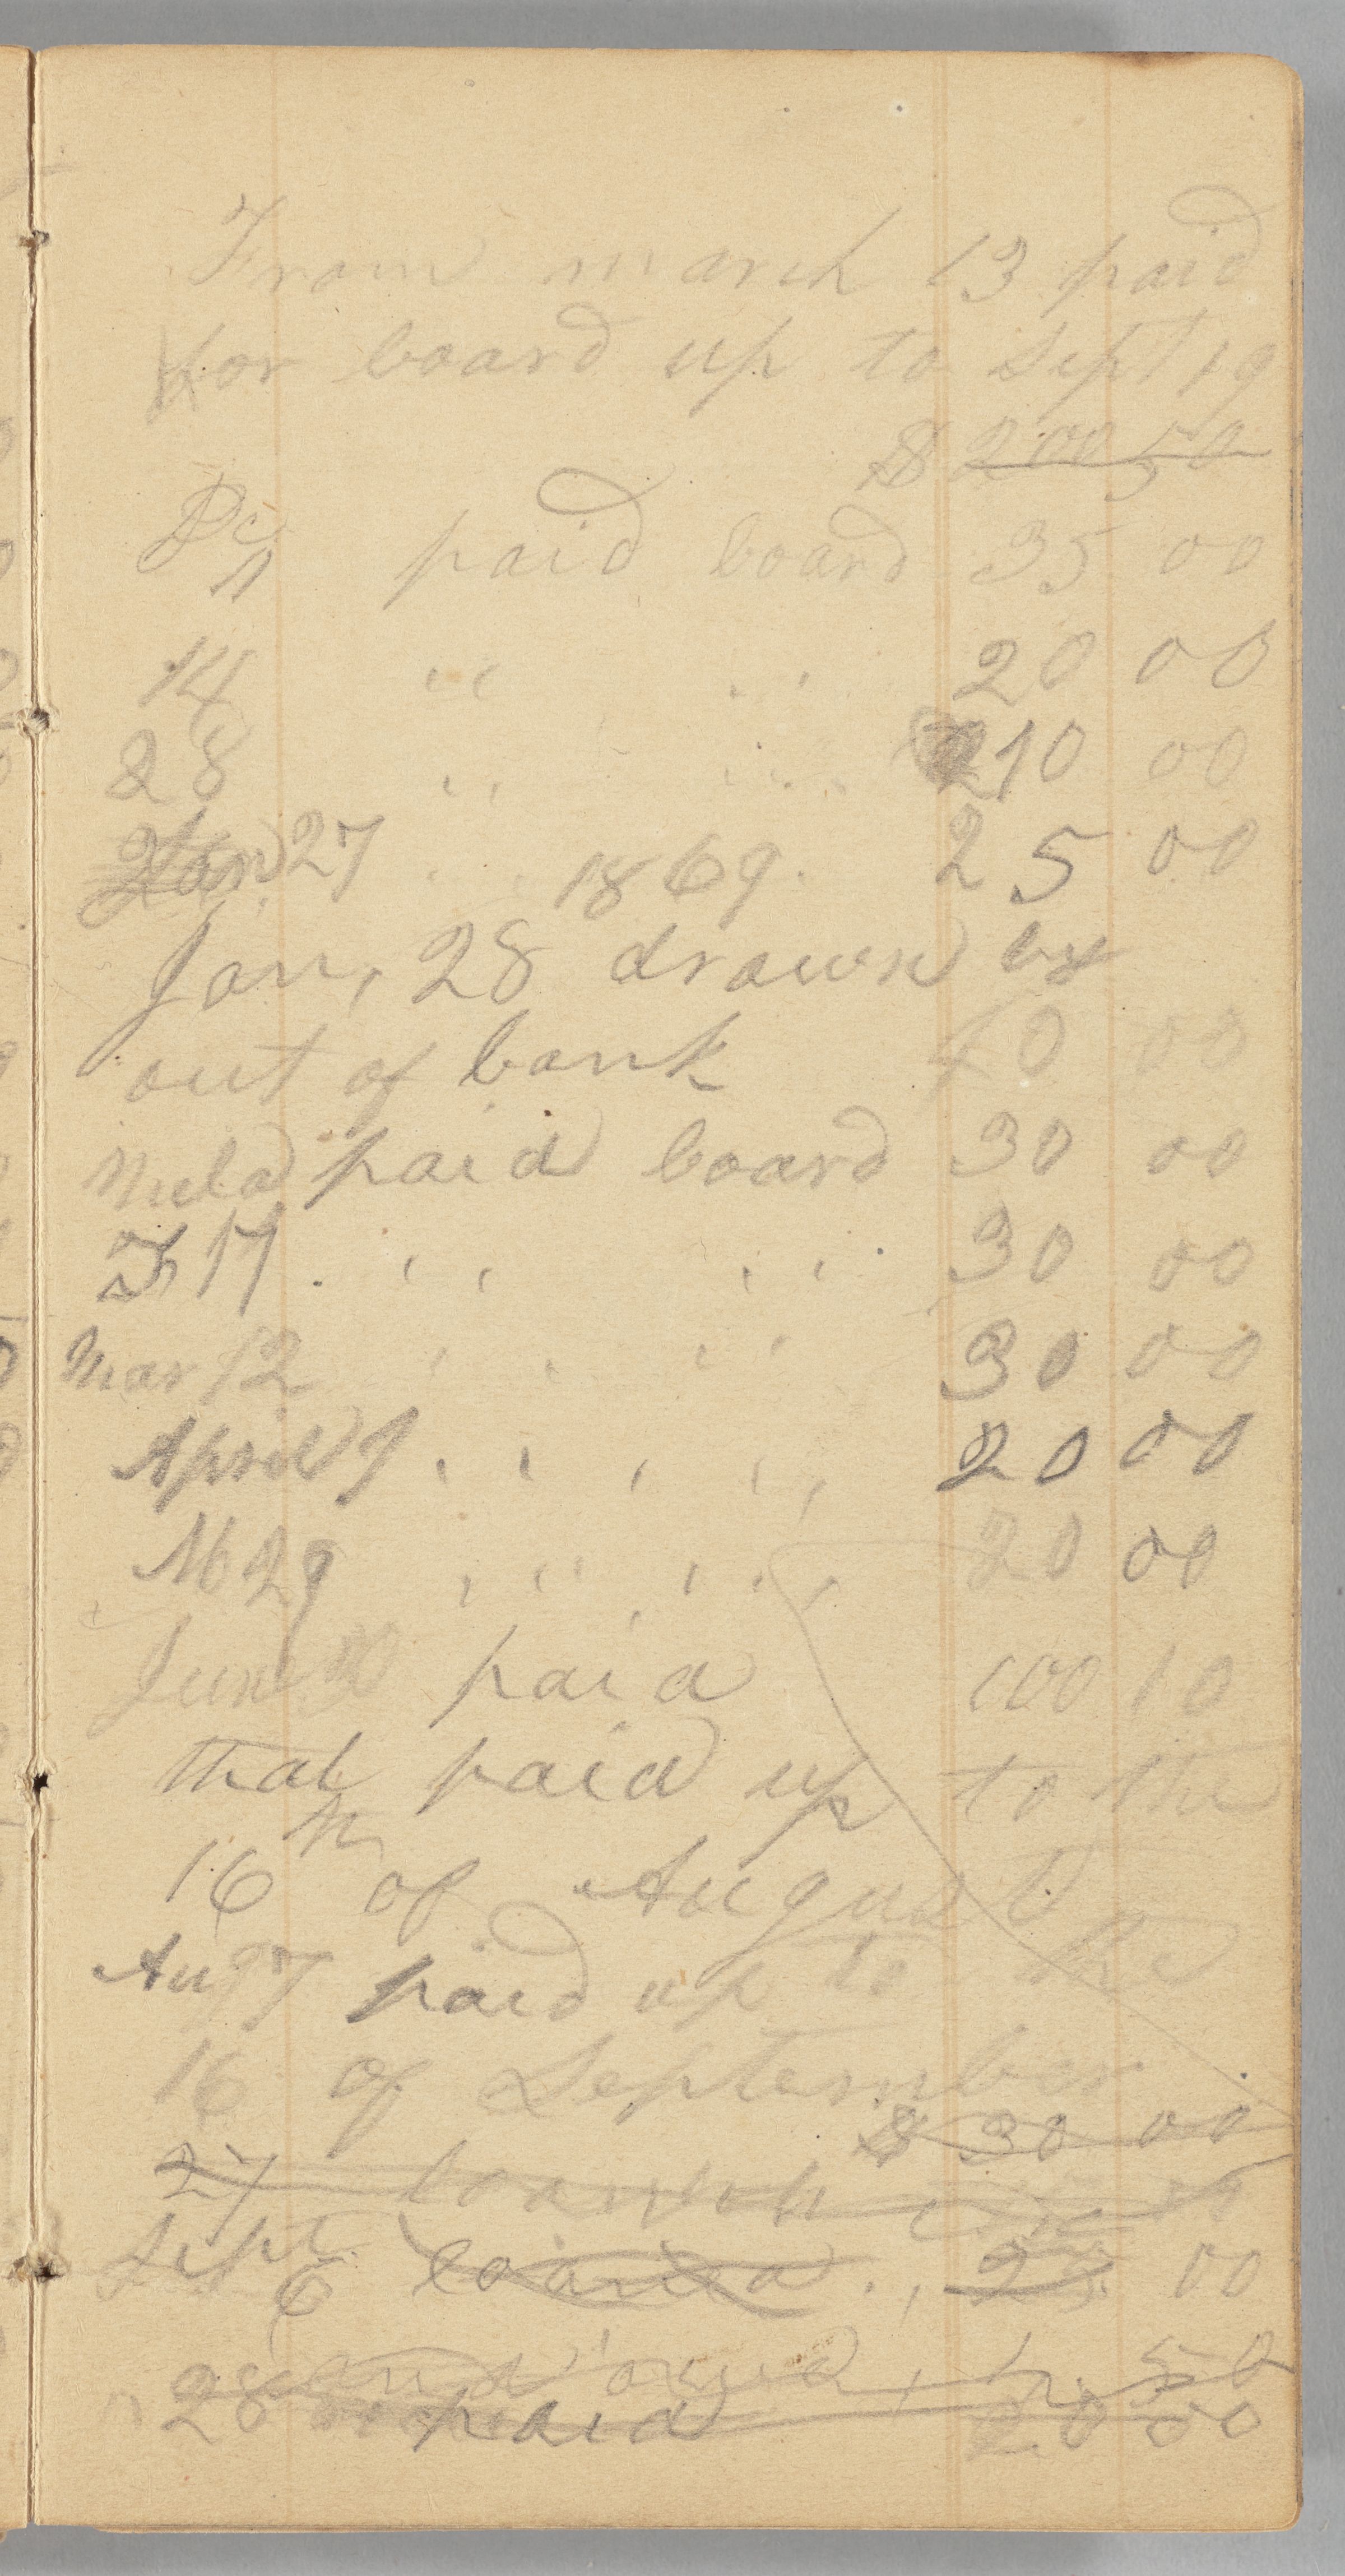 From march 13 paid
for board up to Sept 19
$ 200 50
De 11 paid board 35 00
14 " " 20 00
28 " " 10 00
Jan 27 " 1869. 25 00
Jan, 28 drawn
out of bank 40 00
paid board 30 00
17 " " 30 00
Mar 12 " " 30 00
April 9 " " 20 00
M 29 " " 20 00
June paid 100 10
that paid up to the
16th of August
Aug 7 paid up to the
16 of September
$ 30 00
27
Sept 6 loaned 00
50
28 paid 20 00